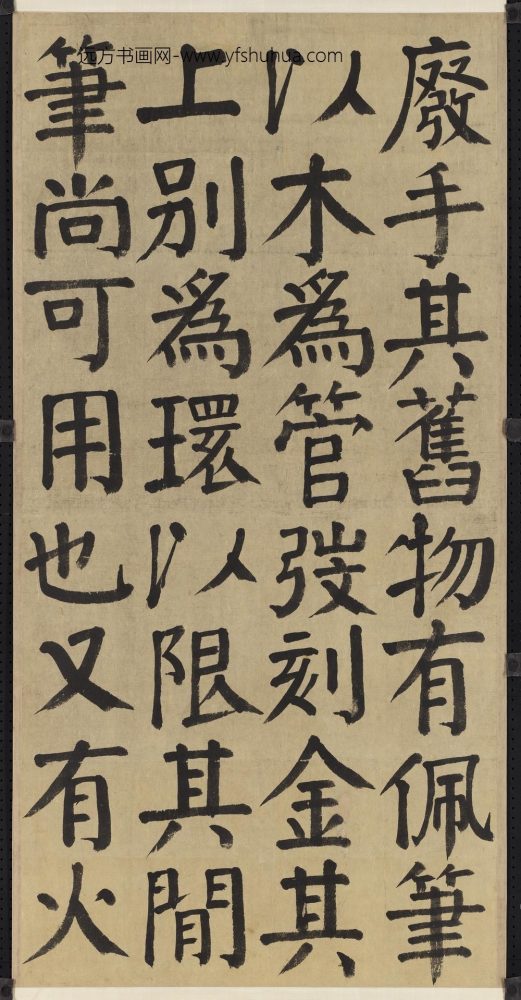 远方书画网-www.yfshuhua.com
廢手其舊物有佩筆
以木為管弢刻金其
上別為環以限其間
筆尚可用也又有火